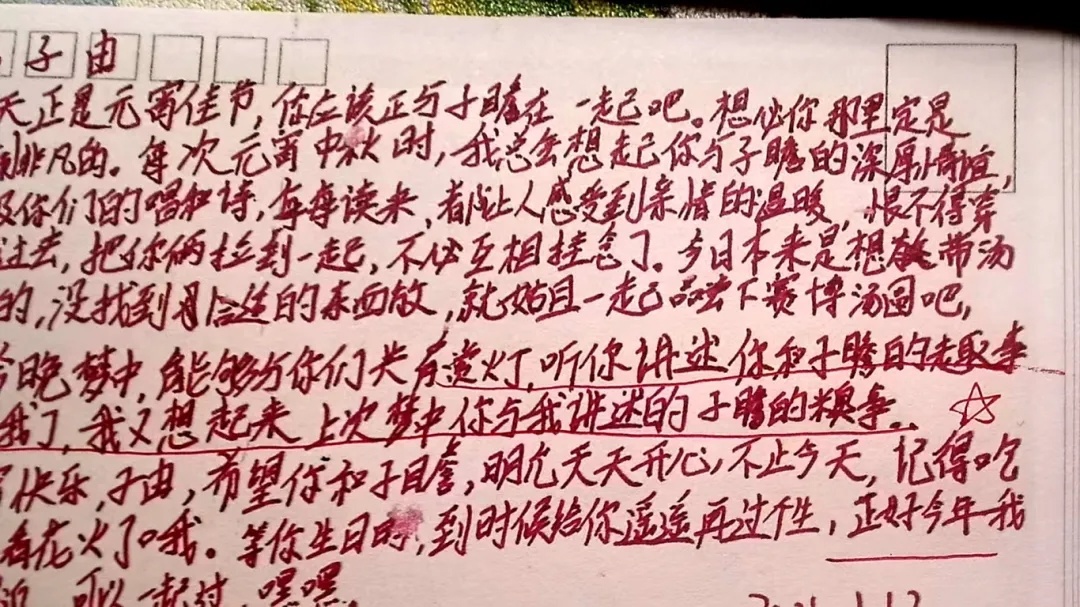 子由
天正是元宵佳节,你应该正与子瞻在一起吧。想必你那里定是
非凡的。每次元宵中秋时,我总会想起你与子瞻的深厚情谊,
及你们的唱和诗,每每读来,都让人感受到亲情的温暖,恨不得穿
过去,把你俩拉到一起,不必互相挂念了。今日本来是想带汤
的,没找到合适的东西做,就姑且一起品尝下赛博汤圆吧,
今晚梦中,能够与你们共有赏灯,听你讲述你和子瞻的趣事
我了,我又想起来上次梦中你与我讲述的子瞻的糗事..
快乐,子由,希望你和子瞻,明允天天开心,不止今天,记得吃
看花火了哦。等你生日时,到时候给你遥遥再过个生,正好今年我
近,可以一起过,嘿嘿。